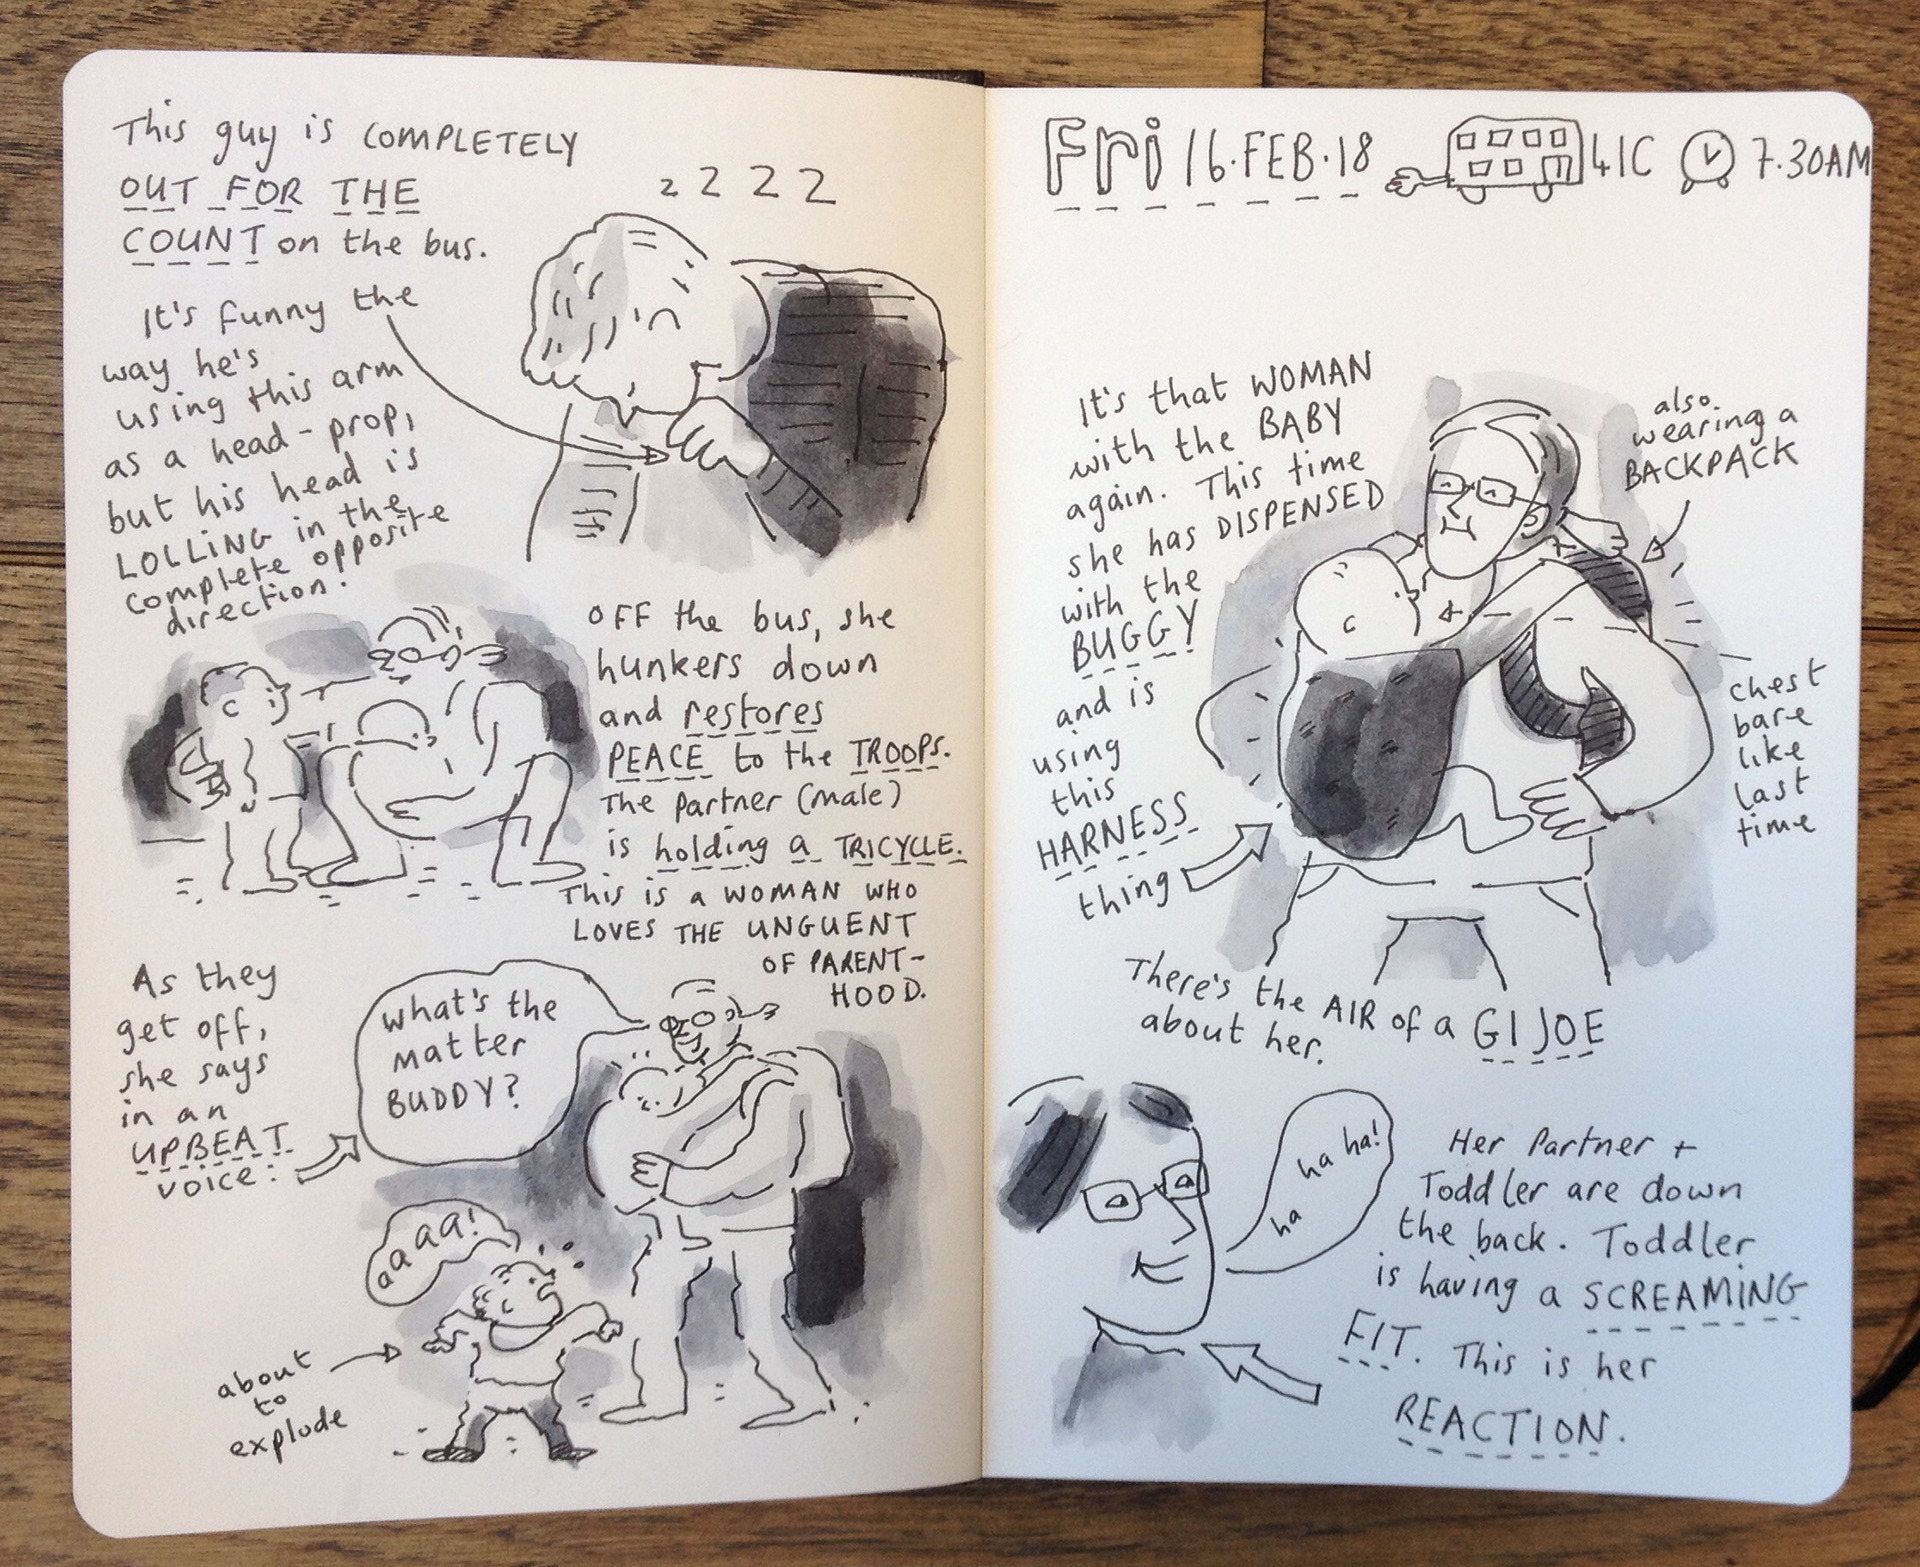 This guy is COMPLETELY
OUT FOR THE
COUNT on the bus.
zZZZ
It's funny the
way he's
using this arm
as a head-prop,
but his head is
LOLLING in the
complete opposite
direction!
OFF the bus, she
hunkers down
and restores
PEACE to the TROOPS.
The partner (male)
is holding a TRICYCLE.
This is a WOMAN WHO
LOVES THE UNGUENT
OF PARENT-
HOOD.
As they
get off,
she says
in an
UPBEAT
voice:
What's the
matter
BUDDY?
aaaa!
about
to
explode
Fri 16.FEB.18 41C 7.30AM
It's that WOMAN
with the BABY
again. This time
she has DISPENSED
with the
BUGGY
and is
using
this
HARNESS
thing
also
wearing a
BACKPACK
chest
bare
like
last
time
There's the AIR of a GI JOE
about her.
ha ha!
ha
Her Partner +
Toddler are down
the back. Toddler
is having a SCREAMING
FIT. This is her
REACTION.